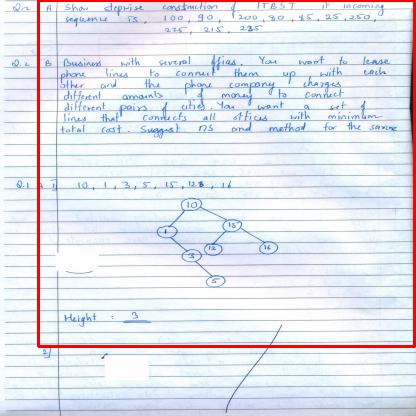 Q.2 A Show stepwise construction of ITBST if incoming
sequence is, 100, 90, 200, 80, 85, 25, 250,
275, 215, 285
Q.2 B Business with several offices. You want to lease
phone lines to connect them up with each
other and the phone company charges
different amounts of money to connect
different pairs of cities. You want a set of
lines that connects all offices with minimum
total cost. Suggest DS and method for the same
Q.1 I] 10, 1, 3, 5, 15, 12, 16
10
1 15
3 12 16
5
Height : 3
2]